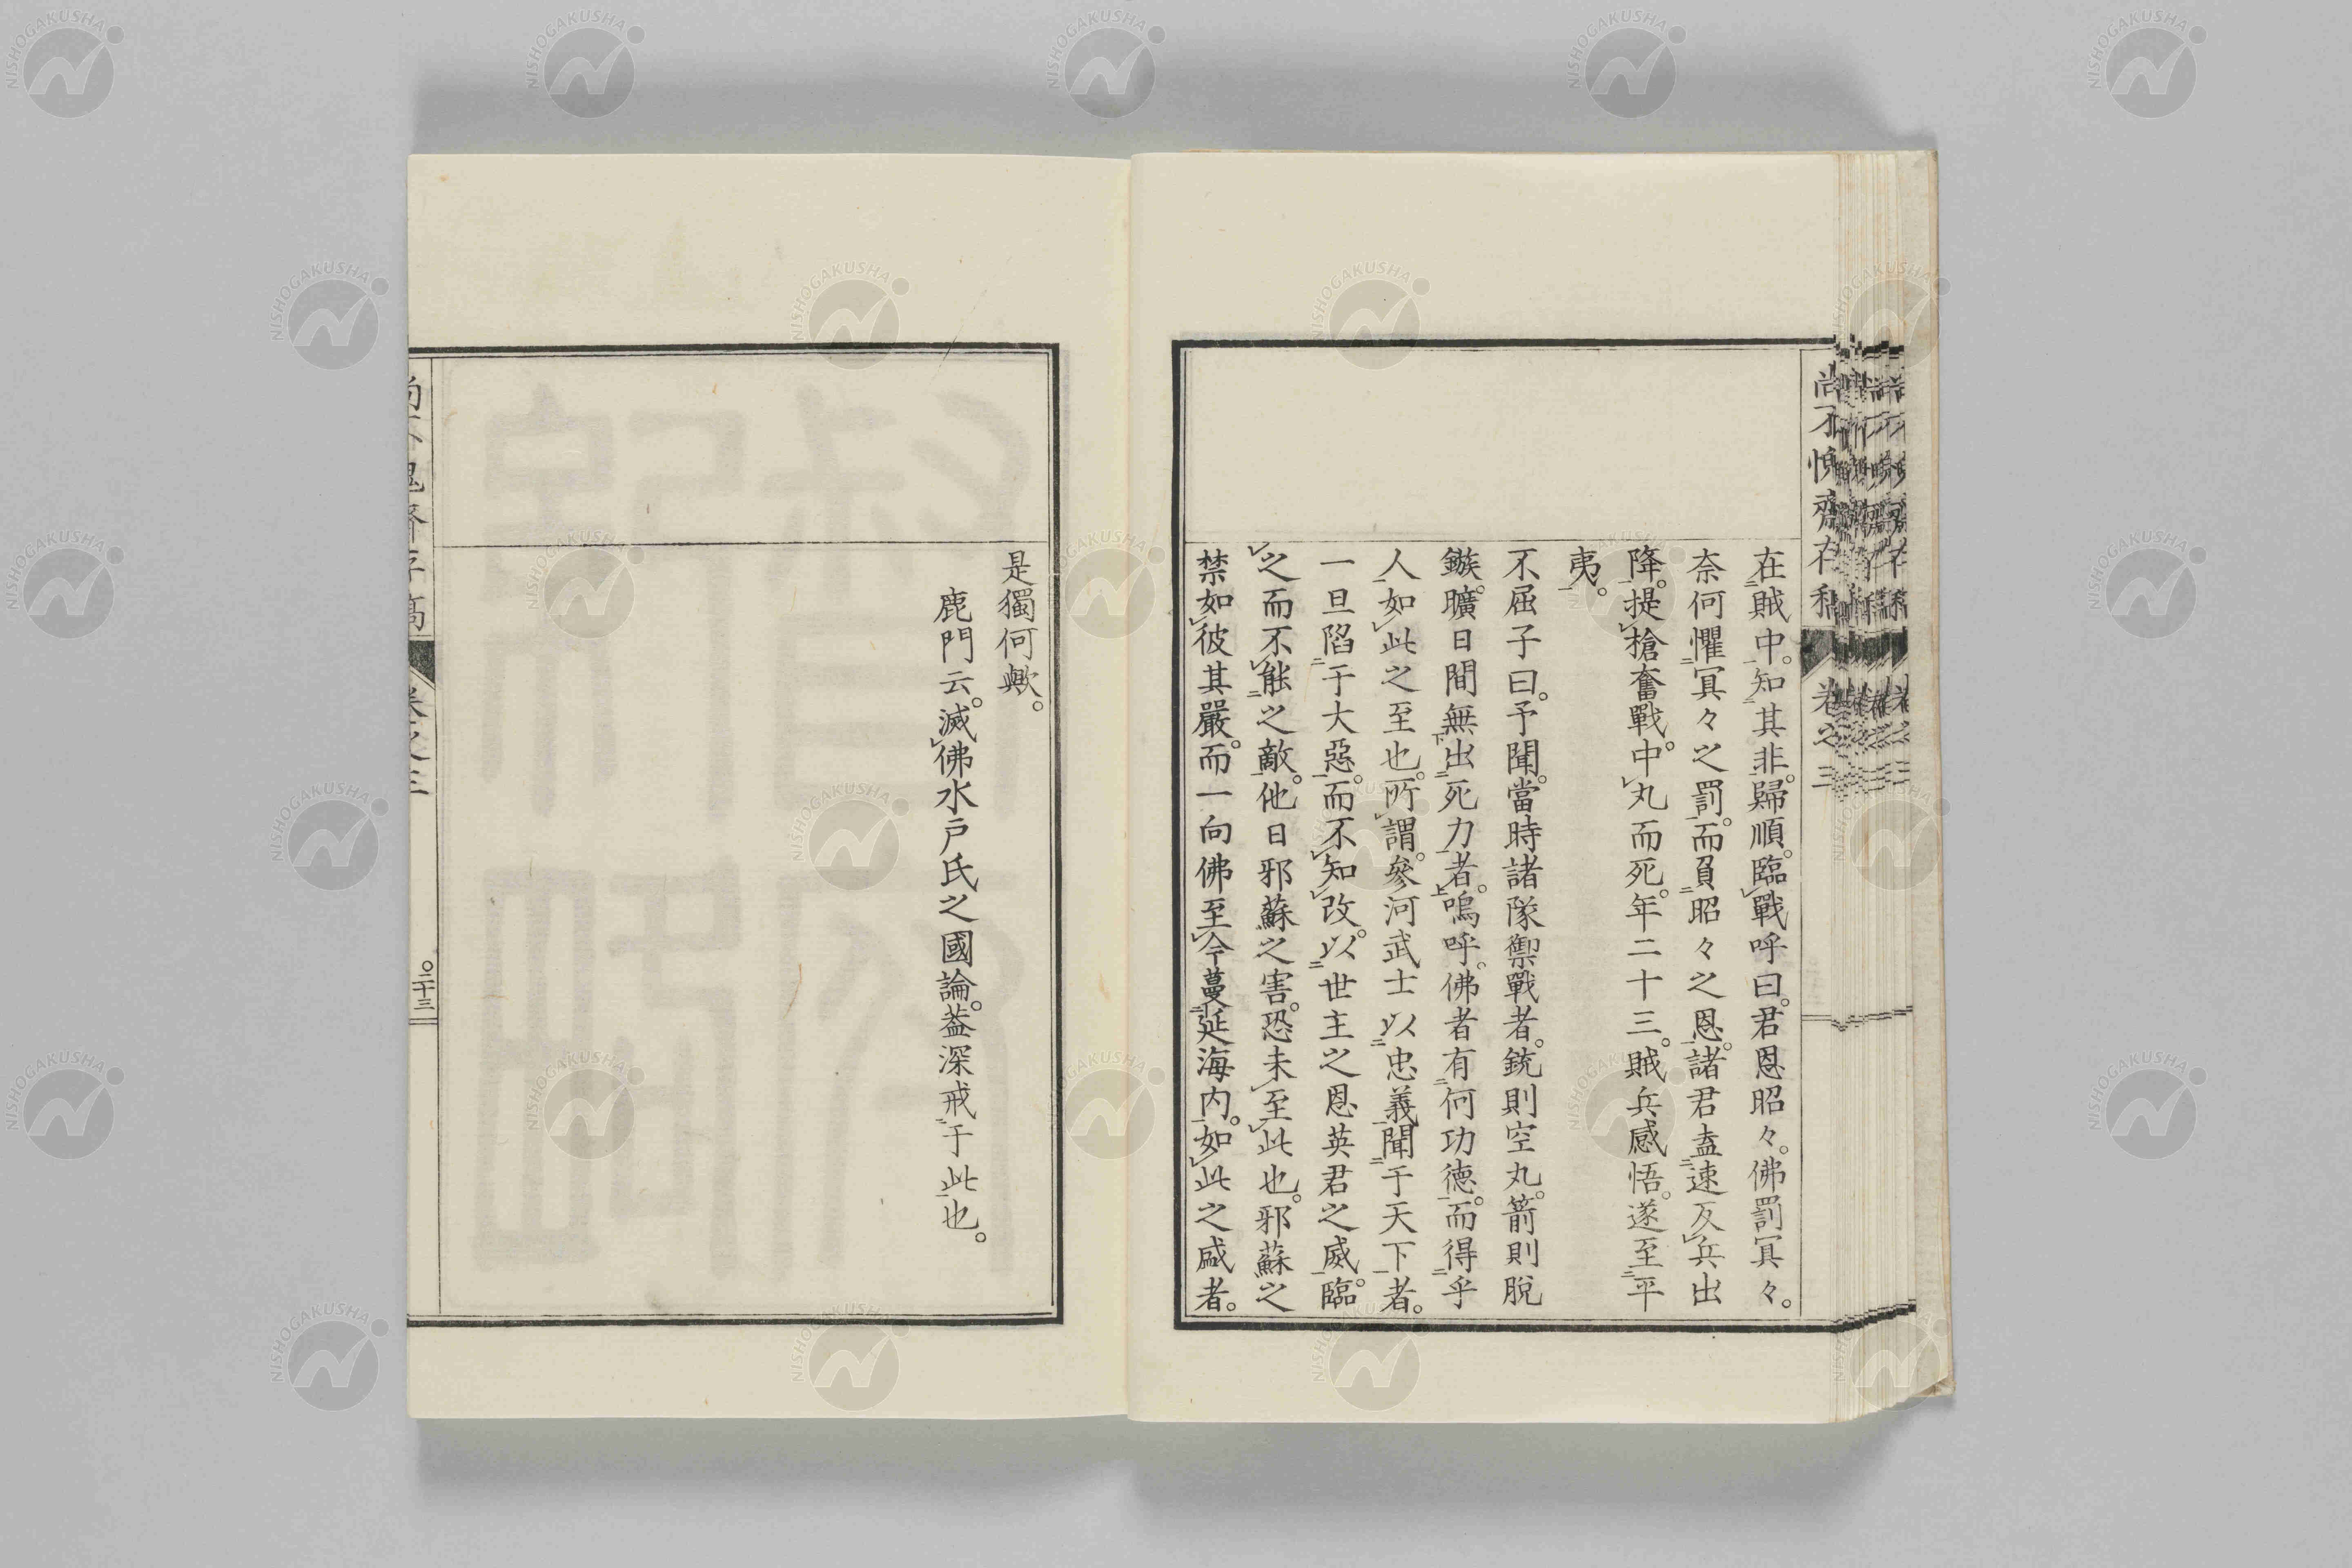 在賊中。知其非。歸順。臨戰呼曰。君恩昭々。佛罰冥々。
奈何懼冥々之罰。而負昭々之恩。諸君盍速反兵出
降。提槍奮戰。中丸而死。年二十三。賊兵感悟。遂至平
夷。
不屈子曰。予聞。當時諸隊禦戰者。銃則空丸。箭則脫
鏃。曠日間無出死力者。嗚呼。佛者有何功德。而得乎
人如此之至也。所謂。參河武士以忠義聞于天下者。
一旦陷于大惡。而不知改。以世主之恩英君之威。臨
之而不能之敵。他日邪蘇之害。恐未至此也。邪蘇之
禁如彼其嚴。而一向佛至今蔓延海内。如此之盛者。
是獨何歟。
鹿門云。滅佛水戶氏之國論。蓋深戒于此也。
卷之三
二十三
NISHOGAKUSHA